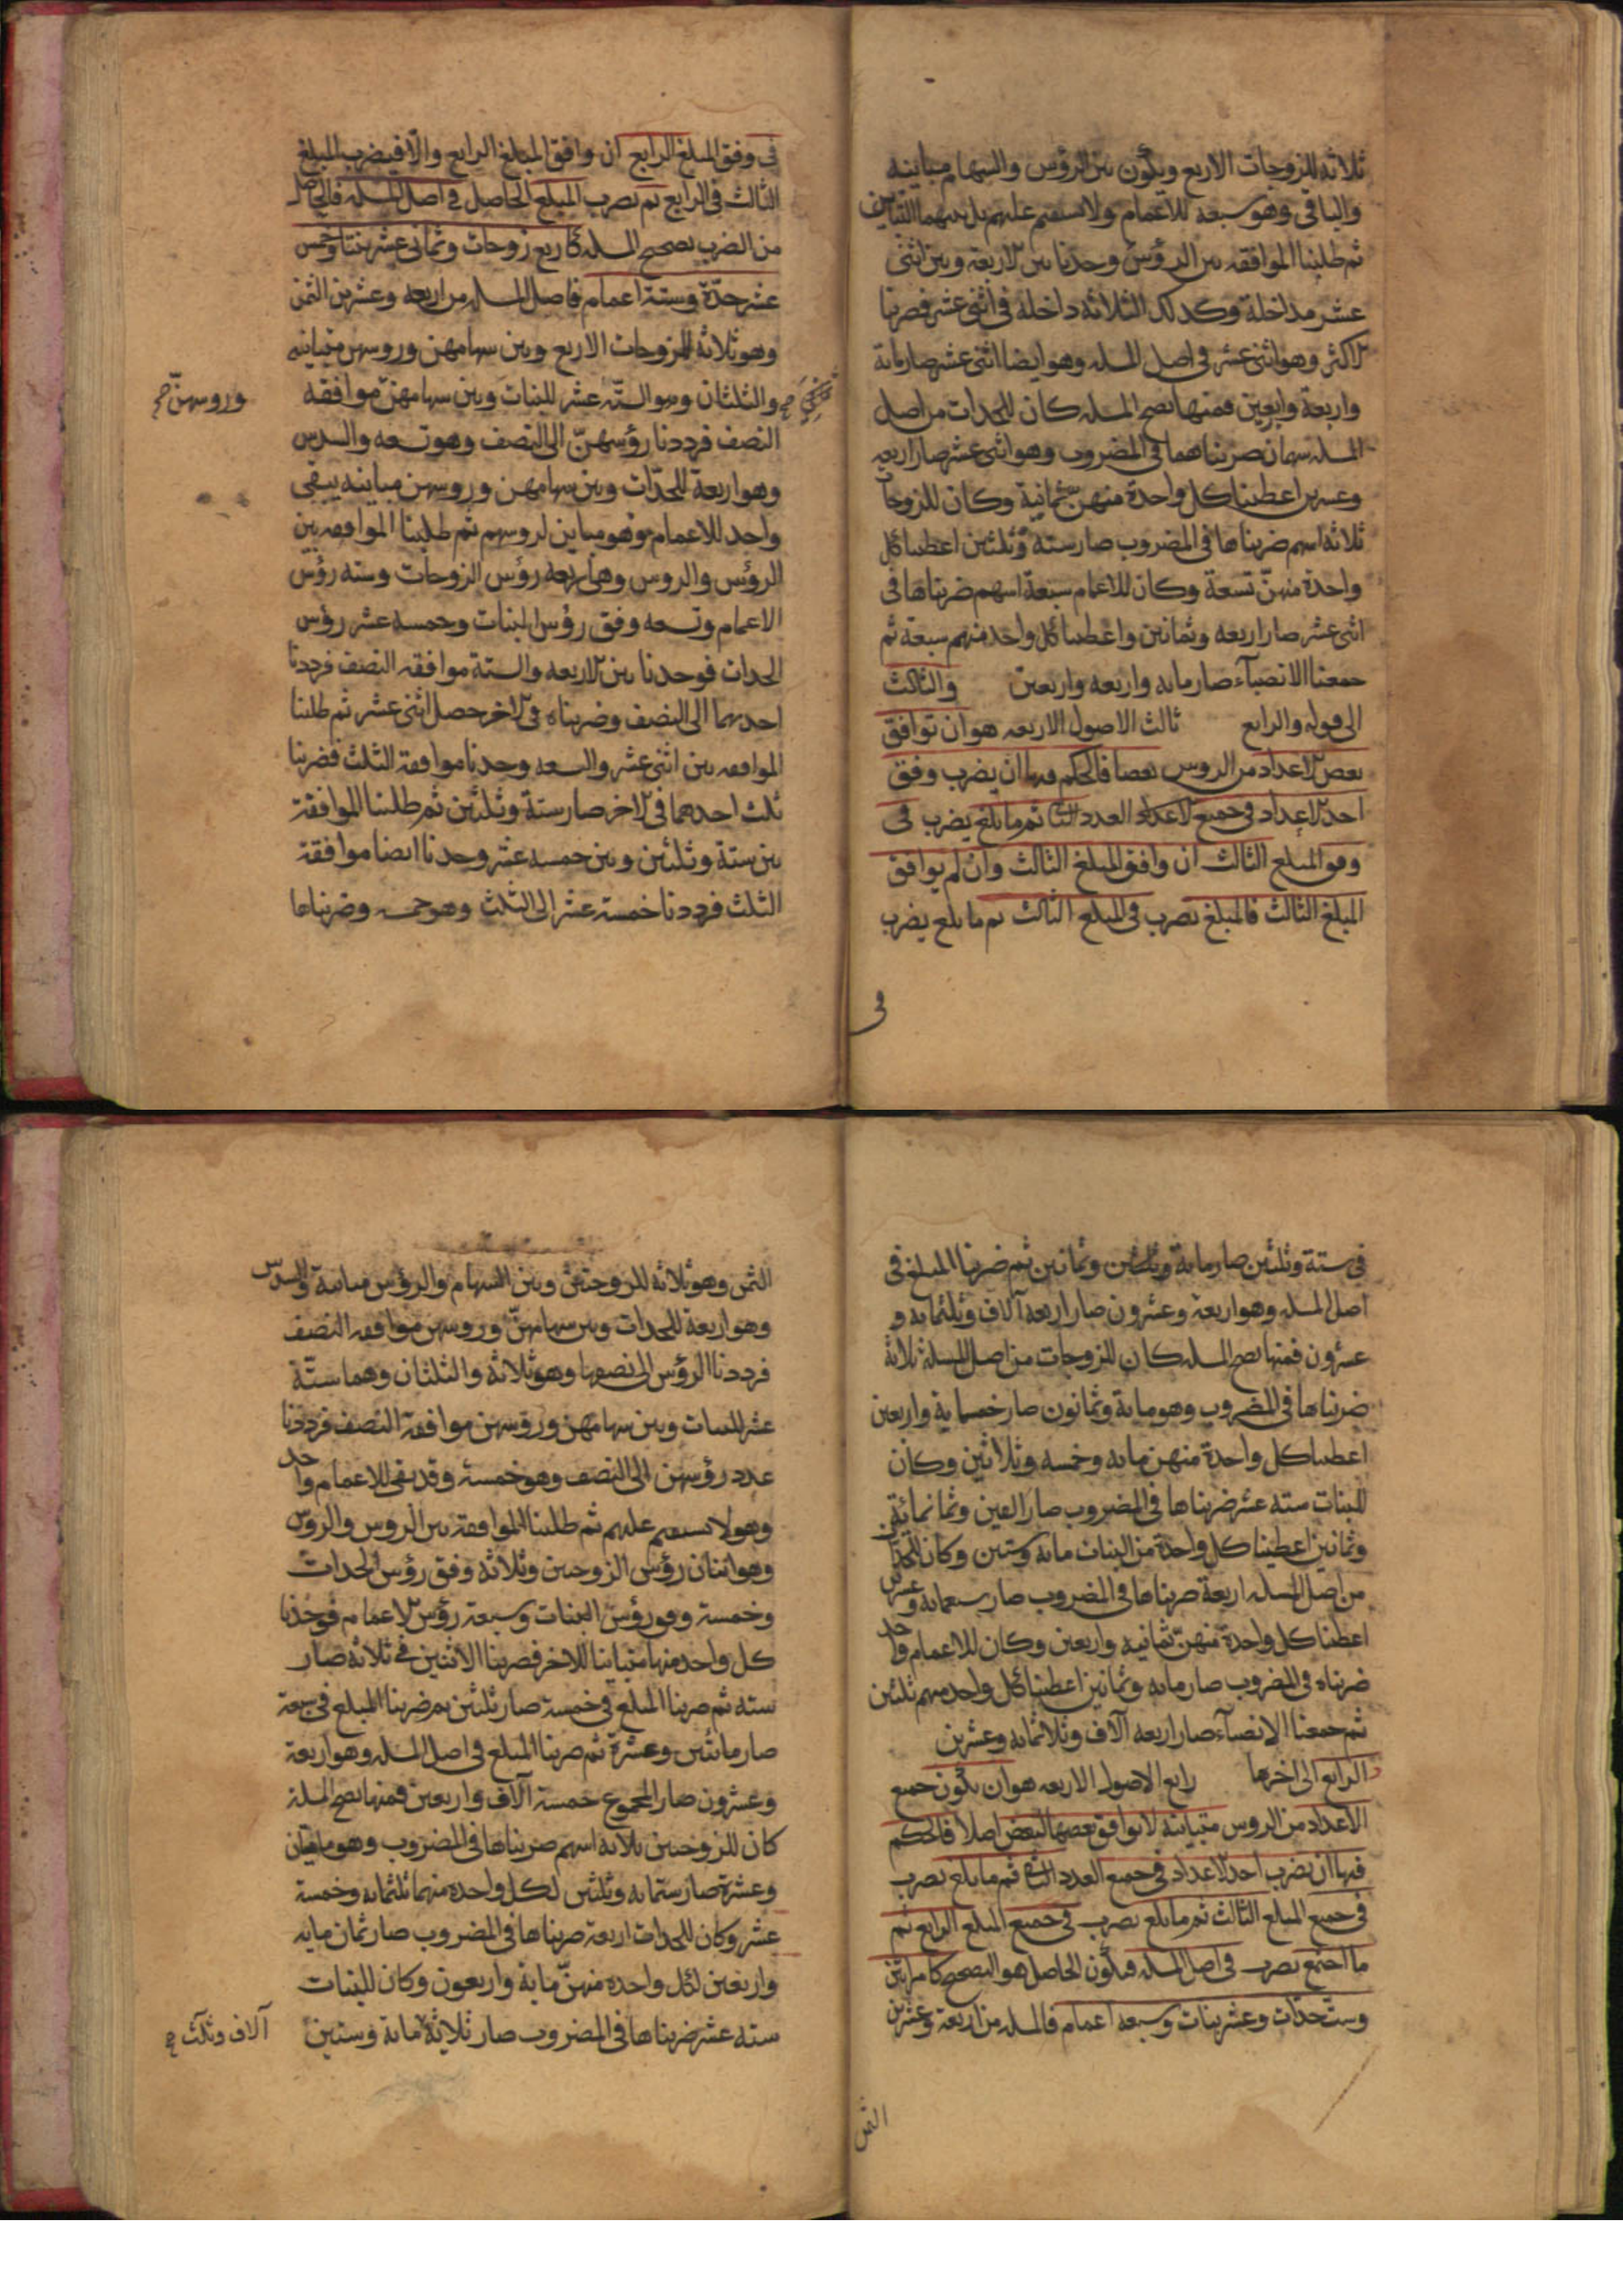 ثلاثة للزوجات الاربع ويكون بين الرؤس والسهام مباينة
والباقى وهو سبعة للاعمام ولا يستقيم عليهم بل بينهما التباين
ثم طلبنا الموافقة بين الرؤس وجدنا بين الاربعة وبين اثنى
عشر مداخلة وكذلك الثلاثة داخلة فى اثنى عشر فضربنا
الاكثر وهو اثنى عشر فى اصل المسله وهو ايضا اثنى عشر صار مائة
واربعة واربعين فمنها تصح المسله كان للجدات من اصل
المسله سهمان ضربناهما فى المضروب وهو اثنى عشر صار اربعه
وعشرين اعطينا كل واحدة منهن ثمانية وكان للزوجات
ثلاثة اسهم ضربناها فى المضروب صار ستة وثلثين اعطينا كل
واحدة منهنّ تسعة وكان للاعمام سبعة اسهم ضربناها فى
اثنى عشر صار اربعه وثمانين واعطينا كل واحد منهم سبعة ثم
جمعنا الانصبآء صار مايه واربعه واربعين والثالث
الى قوله والرابع ثالث الاصول الاربعه هو ان توافق
بعض الاعداد من الروس بعضا فالحكم فيها ان يضرب وفق
احد الاعداد فى جميع الاعداد العدد الثانى ثم ما بلغ يضرب فى
وفق المبلغ الثالث ان وافق المبلغ الثالث وان لم يوافق
المبلغ الثالث فالمبلغ يضرب فى المبلغ الثالث ثم ما بلغ يضرب
فى
فى وفق المبلغ الرابع ان وافق المبلغ الرابع والّا فيضرب المبلغ
الثالث فى الرابع ثم يضرب المبلغ الحاصل فى اصل المسله فالحاصل
من الضرب تصحيح المسله كاربع زوجات وثمانى عشر بنتا وخمس
عشر جدّة وستة اعمام فاصل المسله من اربعه وعشرين الثمن
وهو ثلاثة للزوجات الاربع وبين سهامهن وروسهن متباينه
والثلثان وهو الستّه عشر للبنات وبين سهامهنّ موافقه
وروسهنّ صح
النصف فرددنا رؤسهنّ الى النصف وهو تسعه والسدس
وهو اربعة للجدّات وبين سهامهن وروسهن مباينه يبقى
واحد للاعمام وهو مباين لروسهم ثم طلبنا الموافقه بين
الرؤس والروس وهى اربعه رؤس الزوجات وسته رؤس
الاعمام وتسعه وفق رؤس البنات وخمسه عشر رؤس
الجدات فوجدنا بين الاربعه والستة موافقه النصف فرددنا
احديهما الى النصف وضربناه فى الاخر حصل اثنى عشر ثم طلبنا
الموافقه بين اثنى عشر والتسعه وجدنا موافقة الثلث فضربنا
ثلث احدهما فى الاخر صار ستة وثلثين ثم طلبنا الموافقة
بين ستة وثلثين وبين خمسه عشر وجدنا ايضا موافقة
الثلث فرددنا خمسة عشر الى الثلث وهو خمسه وضربناها
فى ستة وثلثين صار مائة وثمانين ثم ضربنا المبلغ فى
اصل المسله وهو اربعة وعشرون صار اربعة آلاف وثلثمائه و
عشرون فمنها تصح المسله كان للزوجات من اصل المسله ثلاثة
ضربناها فى المضروب وهو مائة وثمانون صار خمسماية واربعين
اعطينا كل واحدة منهن مائه وخمسه وثلاثين وكان
للبنات سته عشر ضربناها فى المضروب صار الفين وثمانمائة
وثمانين اعطينا كل واحدة من البنات مائه وستين وكان للجدات
من اصل المسله اربعة ضربناها فى المضروب صار سبعمائه وعشرين
اعطينا كل واحدة منهنّ ثمانيه واربعين وكان للاعمام واحد
ضربناه فى المضروب صار مايه وثمانين اعطينا كل واحد منهم ثلثين
ثم جمعنا الانصبآء صار اربعه آلاف وثلاثمايه وعشرين
الرابع الى اخرها رابع الاصول الاربعه هو ان يكون جميع
الاعداد من الروس متباينة لا يوافق بعضها البعض اصلا فالحكم
فيها ان يضرب احد الاعداد فى جميع العدد الثانى ثم ما بلغ يضرب
فى جميع المبلغ الثالث ثم ما بلغ يضرب فى جميع المبلغ الرابع ثم
ما اجتمع يضرب فى اصل المسله فيكون الحاصل هو التصحيح كامراتين
وست جدّات وعشر بنات وسبعه اعمام فالمسله من اربعة وعشرين
الثمن
الثمن وهو ثلاثة للزوجتين وبين السهام والرؤس مباينة والسدس
وهو اربعة للجدات وبين سهامهنّ وروسهن موافقه النصف
فرددنا الرؤس الى نصفها وهو ثلاثة والثلثان وهما ستّة
عشر للبنات وبين سهامهن وروسهن موافقة النصف فرددنا
عدد رؤسهن الى النصف وهو خمسة وقد بقى للاعمام واحد
وهو لا يستقيم عليهم ثم طلبنا الموافقة بين الروس والروس
وهو اثنان رؤس الزوجين وثلاثة وفق رؤس الجدات
وخمسة وفق رؤس البنات وسبعة رؤس الاعمام فوجدنا
كل واحد منها متباينا للاخر فضربنا الاثنين فى ثلاثة صار
سته ثم ضربنا المبلغ فى خمسة صار ثلثين ثم ضربنا المبلغ فى سبعة
صار مائتين وعشرة ثم ضربنا المبلغ فى اصل المسله وهو اربعة
وعشرون صار المجموع خمسة آلاف واربعين فمنها تصح المسلة
كان للزوجتين ثلاثة اسهم ضربناها فى المضروب وهو مائتان
وعشرة صار ستمايه وثلثين لكل واحده منهما ثلثمائه وخمسة
عشر وكان للجدات اربعة ضربناها فى المضروب صار ثمان مايه
واربعين لكل واحده منهنّ ماية واربعون وكان للبنات
سته عشر ضربناها فى المضروب صار ثلاثة مائة وستين
آلاف وثلث صح